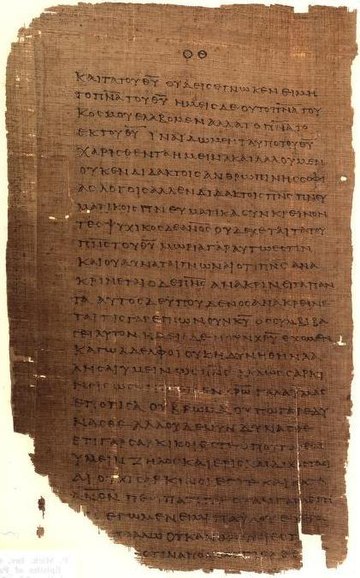 ΟΘ
ΚΑΙ ΤΑ ΤΟΥ ΘΥ ΟΥΔΕΙΣ ΕΓΝΩΚΕΝ ΕΙ ΜΗ
ΤΟ ΠΝΑ ΤΟΥ ΘΥ ΗΜΕΙΣ ΔΕ ΟΥ ΤΟ ΠΝΑ ΤΟΥ
ΚΟΣΜΟΥ ΕΛΑΒΟΜΕΝ ΑΛΛΑ ΤΟ ΠΝΑ ΤΟ
ΕΚ ΤΟΥ ΘΥ ΙΝΑ ΙΔΩΜΕΝ ΤΑ ΥΠΟ ΤΟΥ ΘΥ
ΧΑΡΙΣΘΕΝΤΑ ΗΜΕΙΝ Α ΚΑΙ ΛΑΛΟΥΜΕΝ
ΟΥΚ ΕΝ ΔΙΔΑΚΤΟΙΣ ΑΝΘΡΩΠΙΝΗΣ ΣΟΦΙ
ΑΣ ΛΟΓΟΙΣ ΑΛΛ ΕΝ ΔΙΔΑΚΤΟΙΣ ΠΝΣ ΠΝΕΥ
ΜΑΤΙΚΟΙΣ ΠΝΕΥΜΑΤΙΚΑ ΣΥΝΚΡΙΝΟΝ
ΤΕΣ ΨΥΧΙΚΟΣ ΔΕ ΑΝΟΣ ΟΥ ΔΕΧΕΤΑΙ ΤΑ ΤΟΥ
ΠΝΣ ΤΟΥ ΘΥ ΜΩΡΙΑ ΓΑΡ ΑΥΤΩ ΕΣΤΙΝ
ΚΑΙ ΟΥ ΔΥΝΑΤΑΙ ΓΝΩΝΑΙ ΟΤΙ ΠΝΣ ΑΝΑ
ΚΡΙΝΕΤΑΙ Ο ΔΕ ΠΝΣ ΑΝΑΚΡΙΝΕΙ ΤΑ ΠΑΝ
ΤΑ ΑΥΤΟΣ ΔΕ ΥΠ ΟΥΔΕΝΟΣ ΑΝΑΚΡΕΙΝΕ
ΤΑΙ ΤΙΣ ΓΑΡ ΕΓΝΩ ΝΟΥΝ ΚΥ ΟΣ ΣΥΝΒΙΒΑ
ΣΕΙ ΑΥΤΟΝ ΗΜΕΙΣ ΔΕ ΝΟΥΝ ΧΡΥ ΕΧΟΜΕΝ
ΚΑΓΩ ΑΔΕΛΦΟΙ ΟΥΚ ΗΔΥΝΗΘΗΝ ΛΑ
ΛΗΣΑΙ ΥΜΕΙΝ ΩΣ ΠΝΣ ΑΛΛ ΩΣ ΣΑΡΚΙ
ΝΟΙΣ ΩΣ ΝΗΠΙΟΙΣ ΕΝ ΧΡΩ ΓΑΛΑ ΥΜΑΣ
ΕΠΟΤΙΣΑ ΟΥ ΒΡΩΜΑ ΟΥΠΩ ΓΑΡ ΕΔΥ
ΝΑΣΘΕ ΑΛΛ ΟΥΔΕ ΝΥΝ ΔΥΝΑΣΘΕ
ΕΤΙ ΓΑΡ ΣΑΡΚΙΚΟΙ ΕΣΤΕ ΟΠΟΥ ΓΑΡ ΕΝ
ΥΜΕΙΝ ΖΗΛΟΣ ΚΑΙ ΕΡΙΣ
ΣΑΡΚΙΚΟΙ ΕΣΤΕ ΚΑΙ ΚΑΤΑ
ΑΝΟΝ ΠΕΡΙΠΑΤΕΙΤΕ ΟΤΑΝ ΓΑΡ
ΕΓΩ ΜΕΝ ΕΙΜΙ ΠΑΥΛΟΥ
ΟΥΚ ΑΝΟΙ ΕΣΤΕ